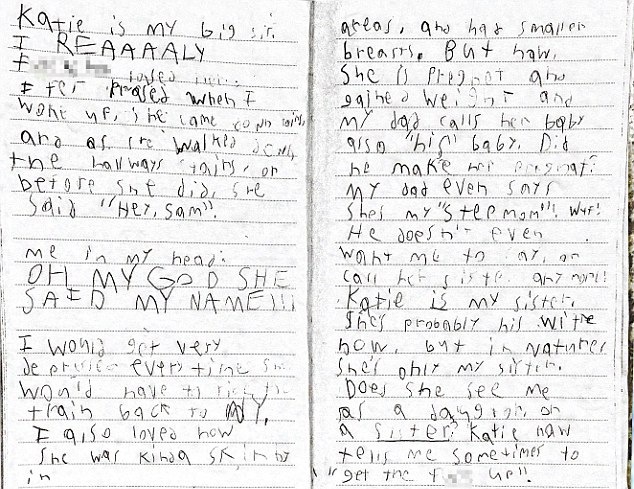 Katie is my big sis.
I REAAAALY
loved
I felt when I
woke up, she came
and as she walked down
the hallways stairs, or
before she did, she
said "Hey, Sam".
me in my head:
OH MY GOD SHE
SAID MY NAME!!!
I would get very
every time she
would have to
train back to NY.
I also loved how
she was kinda
in
areas, and had smaller
breasts. But now,
She is pregnot and
gained weight and
my dad calls her baby
also "his" baby. Did
he make her pregnat?
My dad even says
She's my "stepmom"! WTF!
He doesn't even
want me to say, or
call her sister any more!
Katie is my sister.
She's probably his wife
now, but in nature
she's only my sister.
Does she see me
as a or
a sister? Katie now
tells me sometimes to
"get the f up".